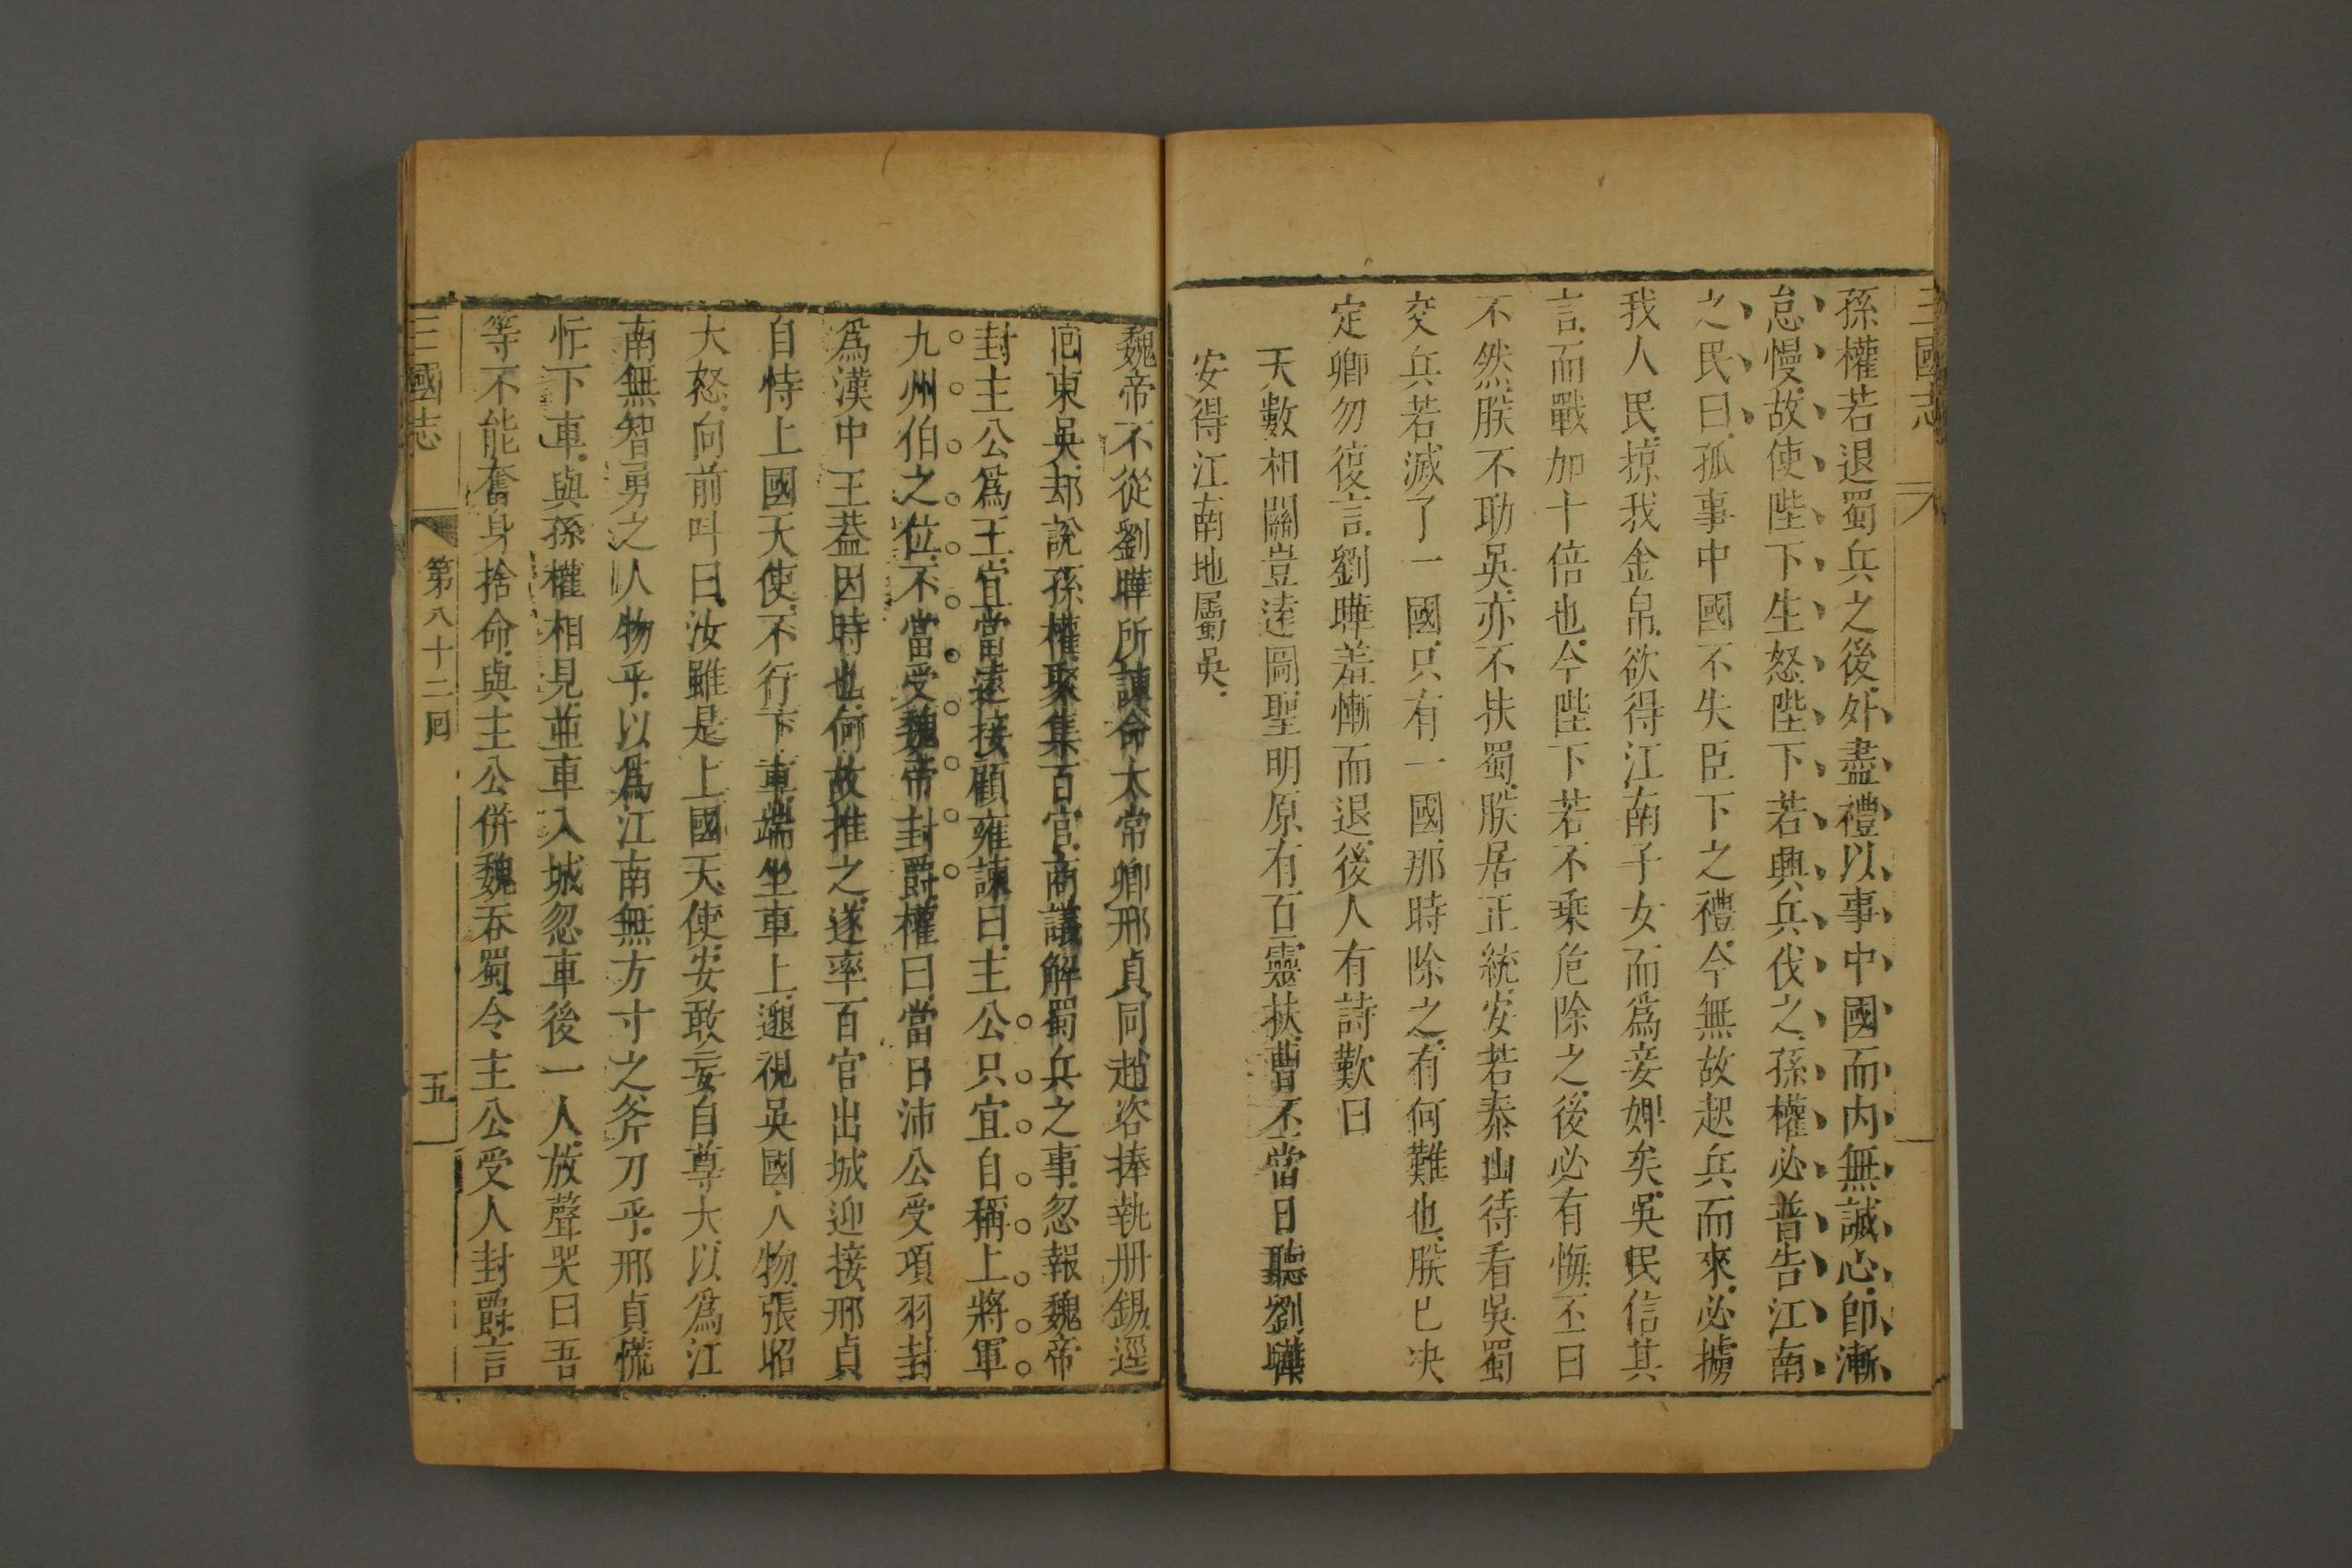 三國志
孫權若退蜀兵之後外盡禮以事中國而內無誠心卽漸
怠慢故使陛下生怒陛下若興兵伐之孫權必普告江南
之民曰孤事中國不失臣下之禮今無故起兵而來必擄
我人民掠我金帛欲得江南子女而爲妾婢矣吳民信其
言而戰加十倍也今陛下若不乘危除之後必有悔丕曰
不然朕不助吳亦不扶蜀朕居正統安若泰山待看吳蜀
交兵若滅了一國只有一國那時除之有何難也朕已决
定卿勿復言劉曄羞慚而退後人有詩歎曰
天數相關豈遠圖聖明原有百靈扶曹丕當日聽劉曄
安得江南地屬吳
魏帝不從劉曄所諫命太常卿邢貞同趙咨捧執册錫逕
囘東吳却說孫權聚集百官商議解蜀兵之事忽報魏帝
封主公爲王宜當遠接顧雍諫曰主公只宜自稱上將軍
九州伯之位不當受魏帝封爵權曰當日沛公受項羽封
爲漢中王葢因時也何故推之遂率百官出城迎接邢貞
自恃上國天使不行下車端坐車上邈視吳國人物張昭
大怒向前叫曰汝雖是上國天使安敢妄自尊大以爲江
南無智勇之人物乎以爲江南無方寸之斧刀乎邢貞慌
怍下車與孫權相見並車入城忽車後一人放聲哭曰吾
等不能奮身捨命與主公併魏吞蜀令主公受人封爵言
三國志
第八十二囘
五